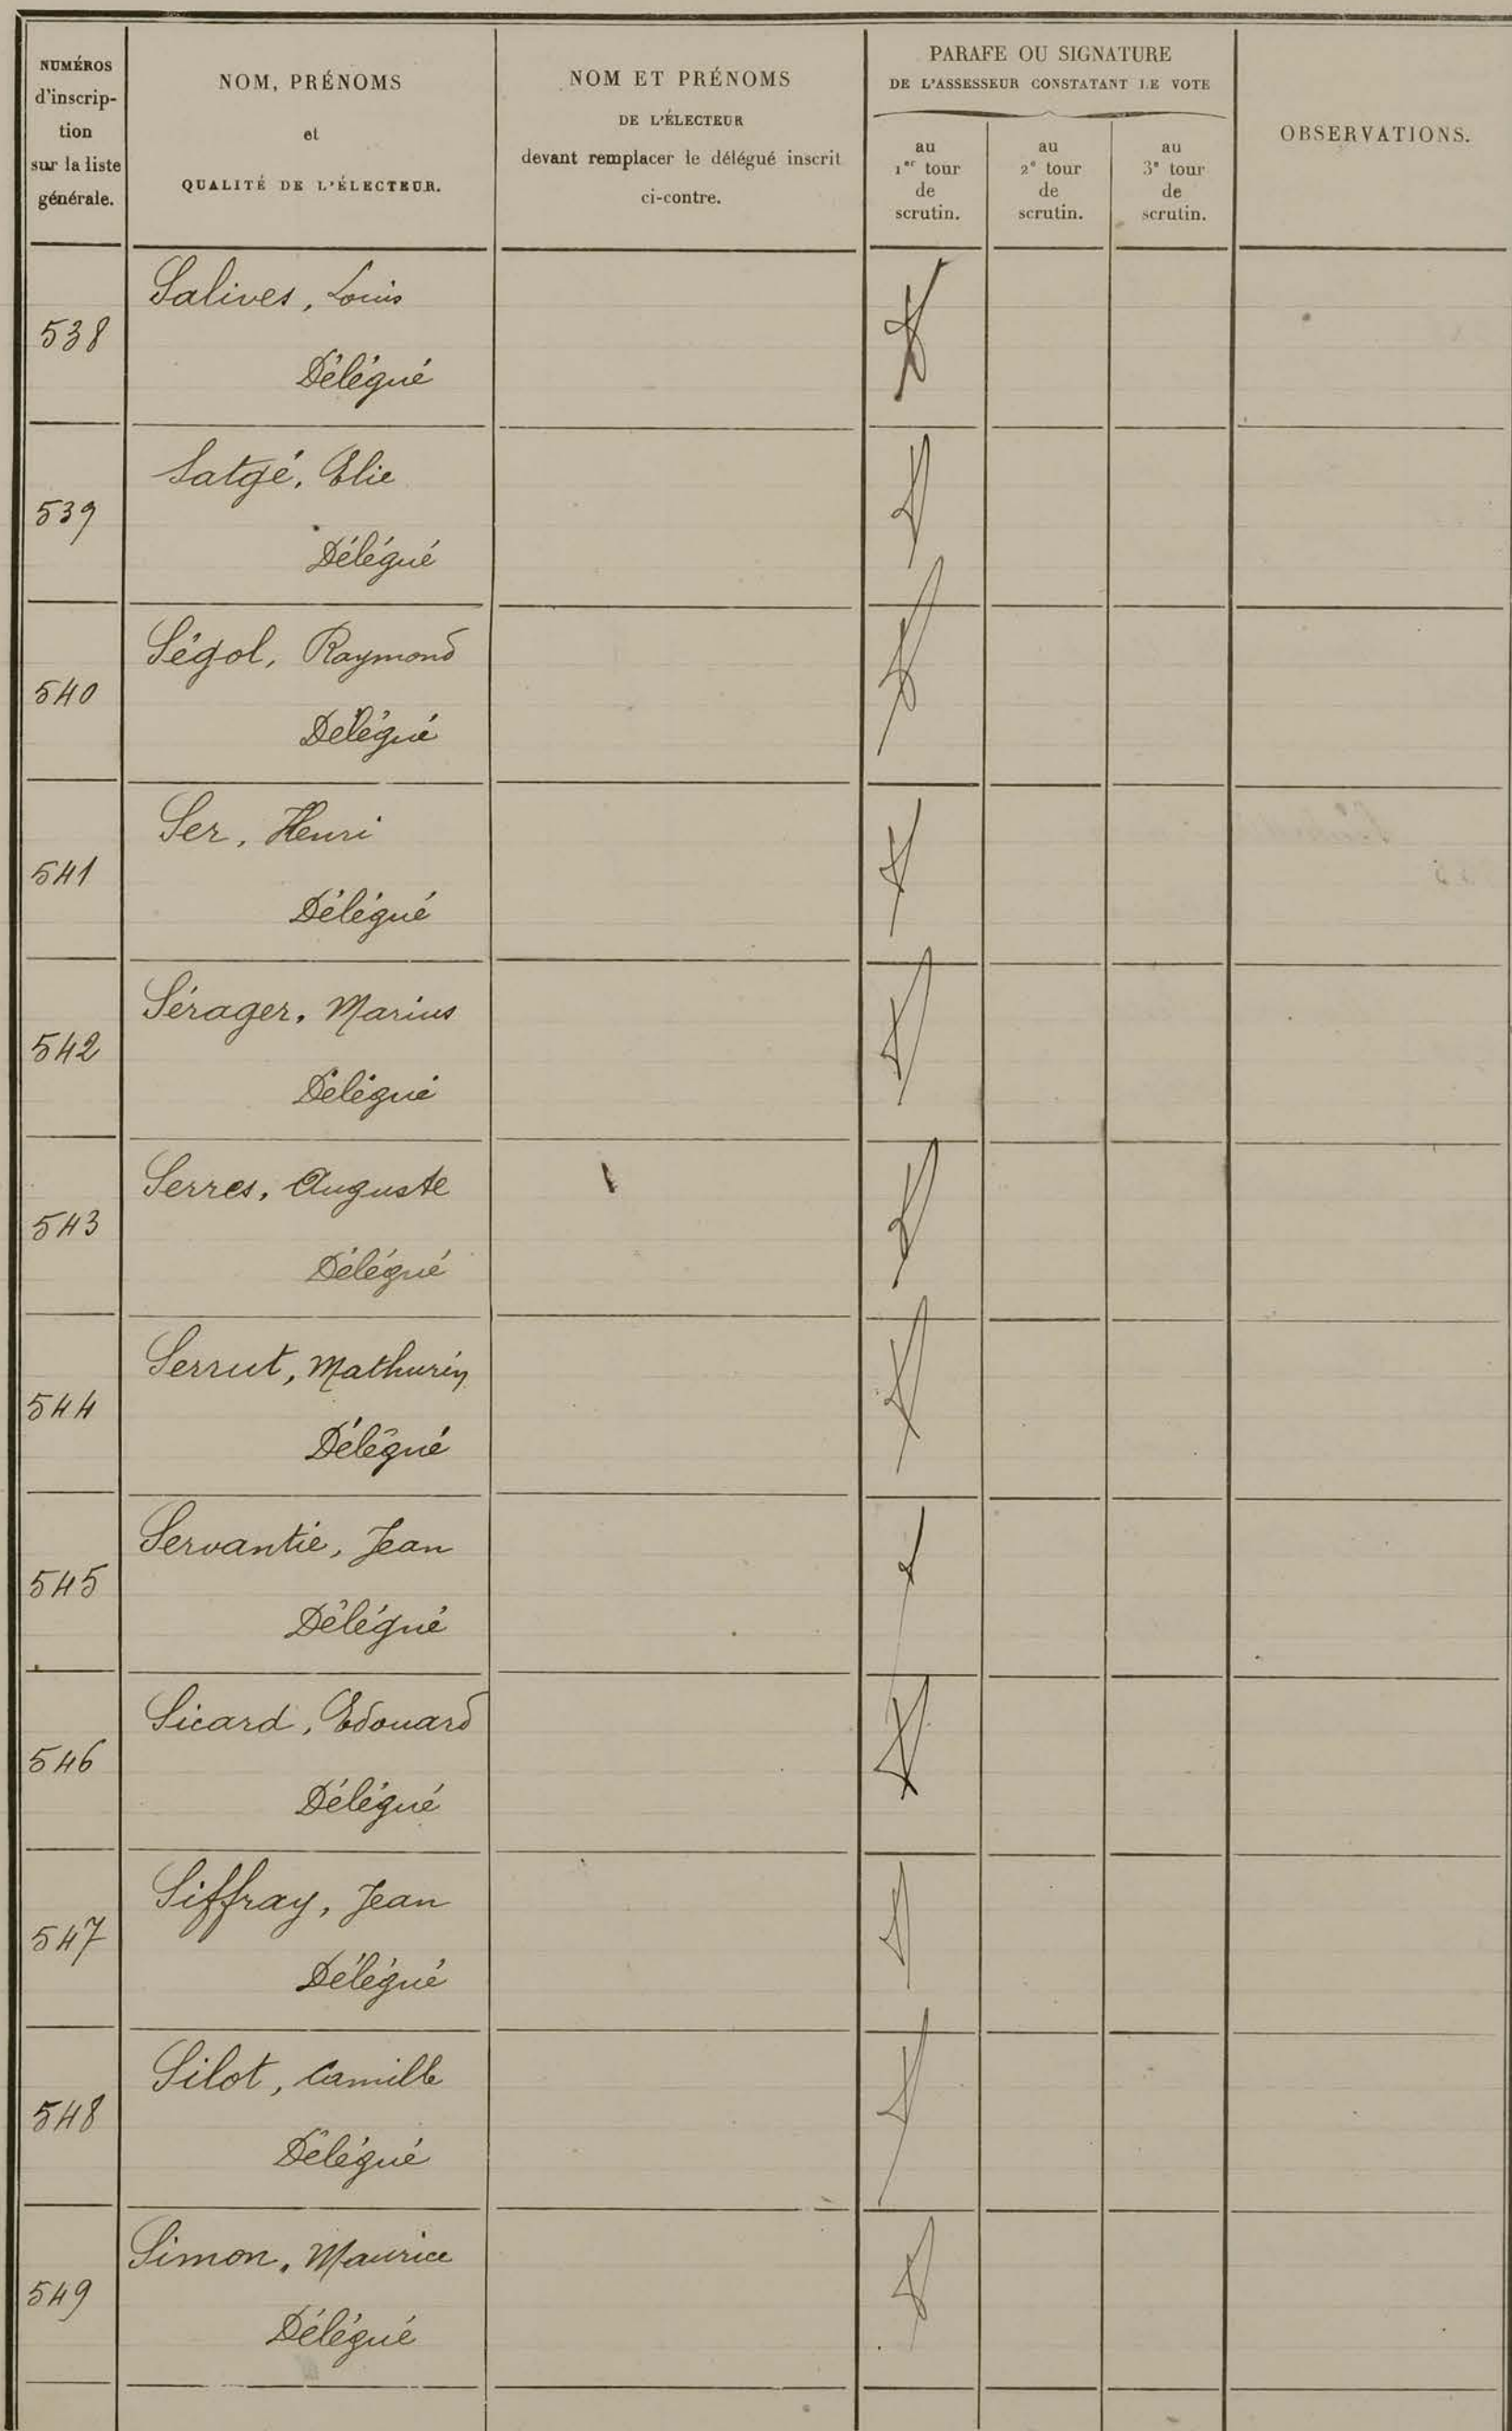 NUMÉROS
d'inscrip-
tion
sur la liste
générale.
NOM, PRÉNOMS
et
QUALITÉ DE L'ÉLECTEUR.
NOM ET PRÉNOMS
DE L'ÉLECTEUR
devant remplacer le délégué inscrit
ci-contre.
PARAFE OU SIGNATURE
DE L'ASSESSEUR CONSTATANT LE VOTE
au
1er tour
de
scrutin.
au
2e tour
de
scrutin.
au
3e tour
de
scrutin.
OBSERVATIONS.
538
Salives, Louis
Délégué
539
Satgé, Elie
Délégué
540
Ségol, Raymond
Délégué
541
Ser, Henri
Délégué
542
Sérager, Marius
Délégué
543
Serres, Auguste
Délégué
544
Serrut, Mathurin
Délégué
545
Servantie, Jean
Délégué
546
Sicard, Edouard
Délégué
547
Siffray, Jean
Délégué
548
Silot, Camille
Délégué
549
Simon, Maurice
Délégué